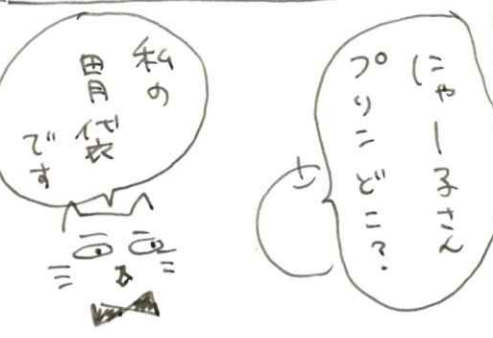 にゃー子さん
プリンどこ?
私の
胃袋
です